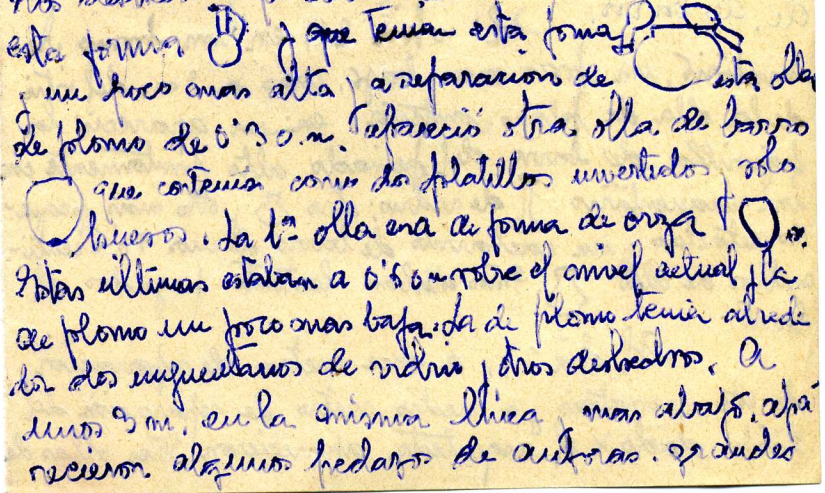 esta forma y que tenia esta forma
y un poco mas alta y a reparacion de esta olla
de plomo de 0'30 m. aparecio otra olla de barro
que contenia como dos platillos invertidos y solo
huesos. La 1ª olla era de forma de orza
Estas ultimas estaban a 0'60 m sobre el nivel actual y la
de plomo un poco mas baja. La de plomo tenia alrede
dor dos unguentarios de vidrio y otros deshechos. A
unos 3 m. en la misma linea, mas abajo, apa
recieron algunos pedazos de anforas grandes